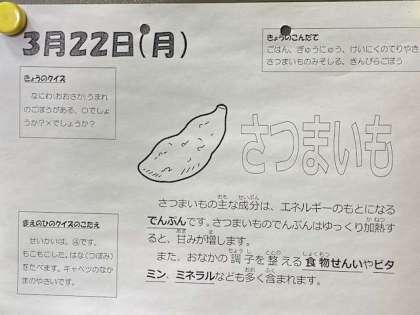 3月22日(月)
きょうのこんだて
ごはん、ぎゅうにゅう、けいにくのてりやき
さつまいものみそしる、きんぴらごぼう
きょうのクイズ
なにわ(おおさか)うまれ
のごぼうがある。〇でしょ
うか?×でしょうか?
さつまいも
さつまいもの主な成分は、エネルギーのもとになる
でんぷんです。さつまいものでんぷんはゆっくり加熱す
ると、甘みが増します。
また、おなかの調子を整える食物せんいやビタ
ミン、ミネラルなども多く含まれます。
まえのひのクイズのこたえ
せいかいは、④です。
もこもこした、はな(つぼみ)
をたべます。キャベツのなか
まのやさいです。